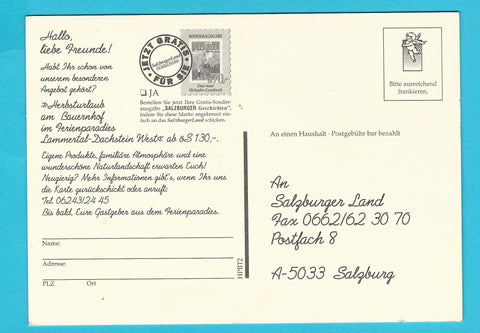 Hallo,
liebe Freunde!
Habt Ihr schon von
unserem besonderen
Angebot gehört?
»Herbsturlaub
am Bauernhof
im Ferienparadies
Lammertal-Dachstein West« ab öS 130,-.
Eigene Produkte, familiäre Atmosphäre und eine
wunderschöne Naturlandschaft erwarten Euch!
Neugierig? Mehr Informationen gibt's, wenn Ihr uns
die Karte zurückschickt oder anruft:
Tel. 06243/24 45
Bis bald, Eure Gastgeber aus dem Ferienparadies.
JETZT GRATIS
FÜR SIE
SalzburgerLand
SONDERAUSGABE
SALZBURGER
JA
Bestellen Sie jetzt Ihre Gratis-Sonder-
ausgabe „SALZBURGER Geschichten",
indem Sie diese Marke angekreuzt ein-
fach an das SalzburgerLand schicken.
Name:
Adresse:
PLZ Ort
HPBT2
Bitte ausreichend
frankieren.
An einen Haushalt · Postgebühr bar bezahlt
An
Salzburger Land
Fax 0662/62 30 70
Postfach 8
A-5033 Salzburg